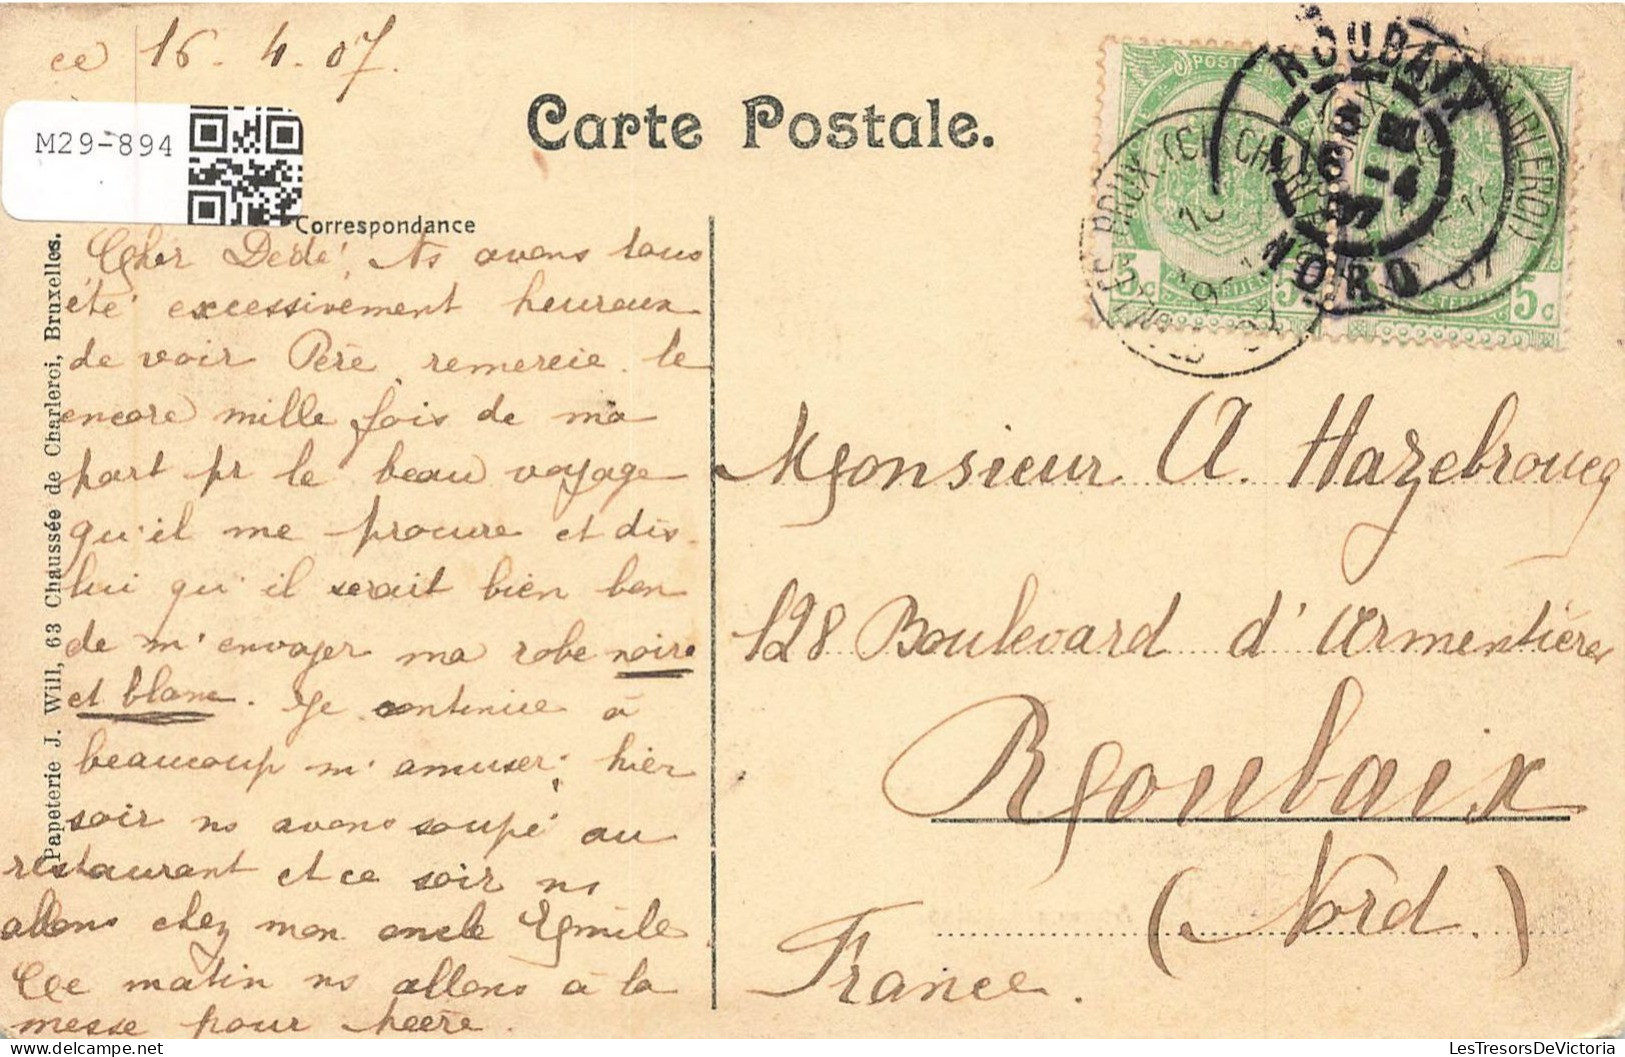 ce 16. 4. 07.
M29-894
Carte Postale.
Correspondance
Papeterie J. Will, 63 Chaussée de Charleroi, Bruxelles.
Cher Dédé, Ns avons tous
été excessivement heureux
de voir Père, remercie le
encore mille fois de ma
part pr le beau voyage
qu'il me procure et dis
lui qu'il serait bien bon
de m'envoyer ma robe noire
et blanc. Je continue à
beaucoup m'amuser; hier
soir ns avons soupé au
restaurant et ce soir ns
allons chez mon oncle Emile
Ce matin ns allons à la
messe pour
ROUBAIX
NORD
5c
5c
Monsieur A. Hazebroucq
128 Boulevard d'Armentières
Roubaix
(Nord.)
France.
LesTresorsDeVictoria